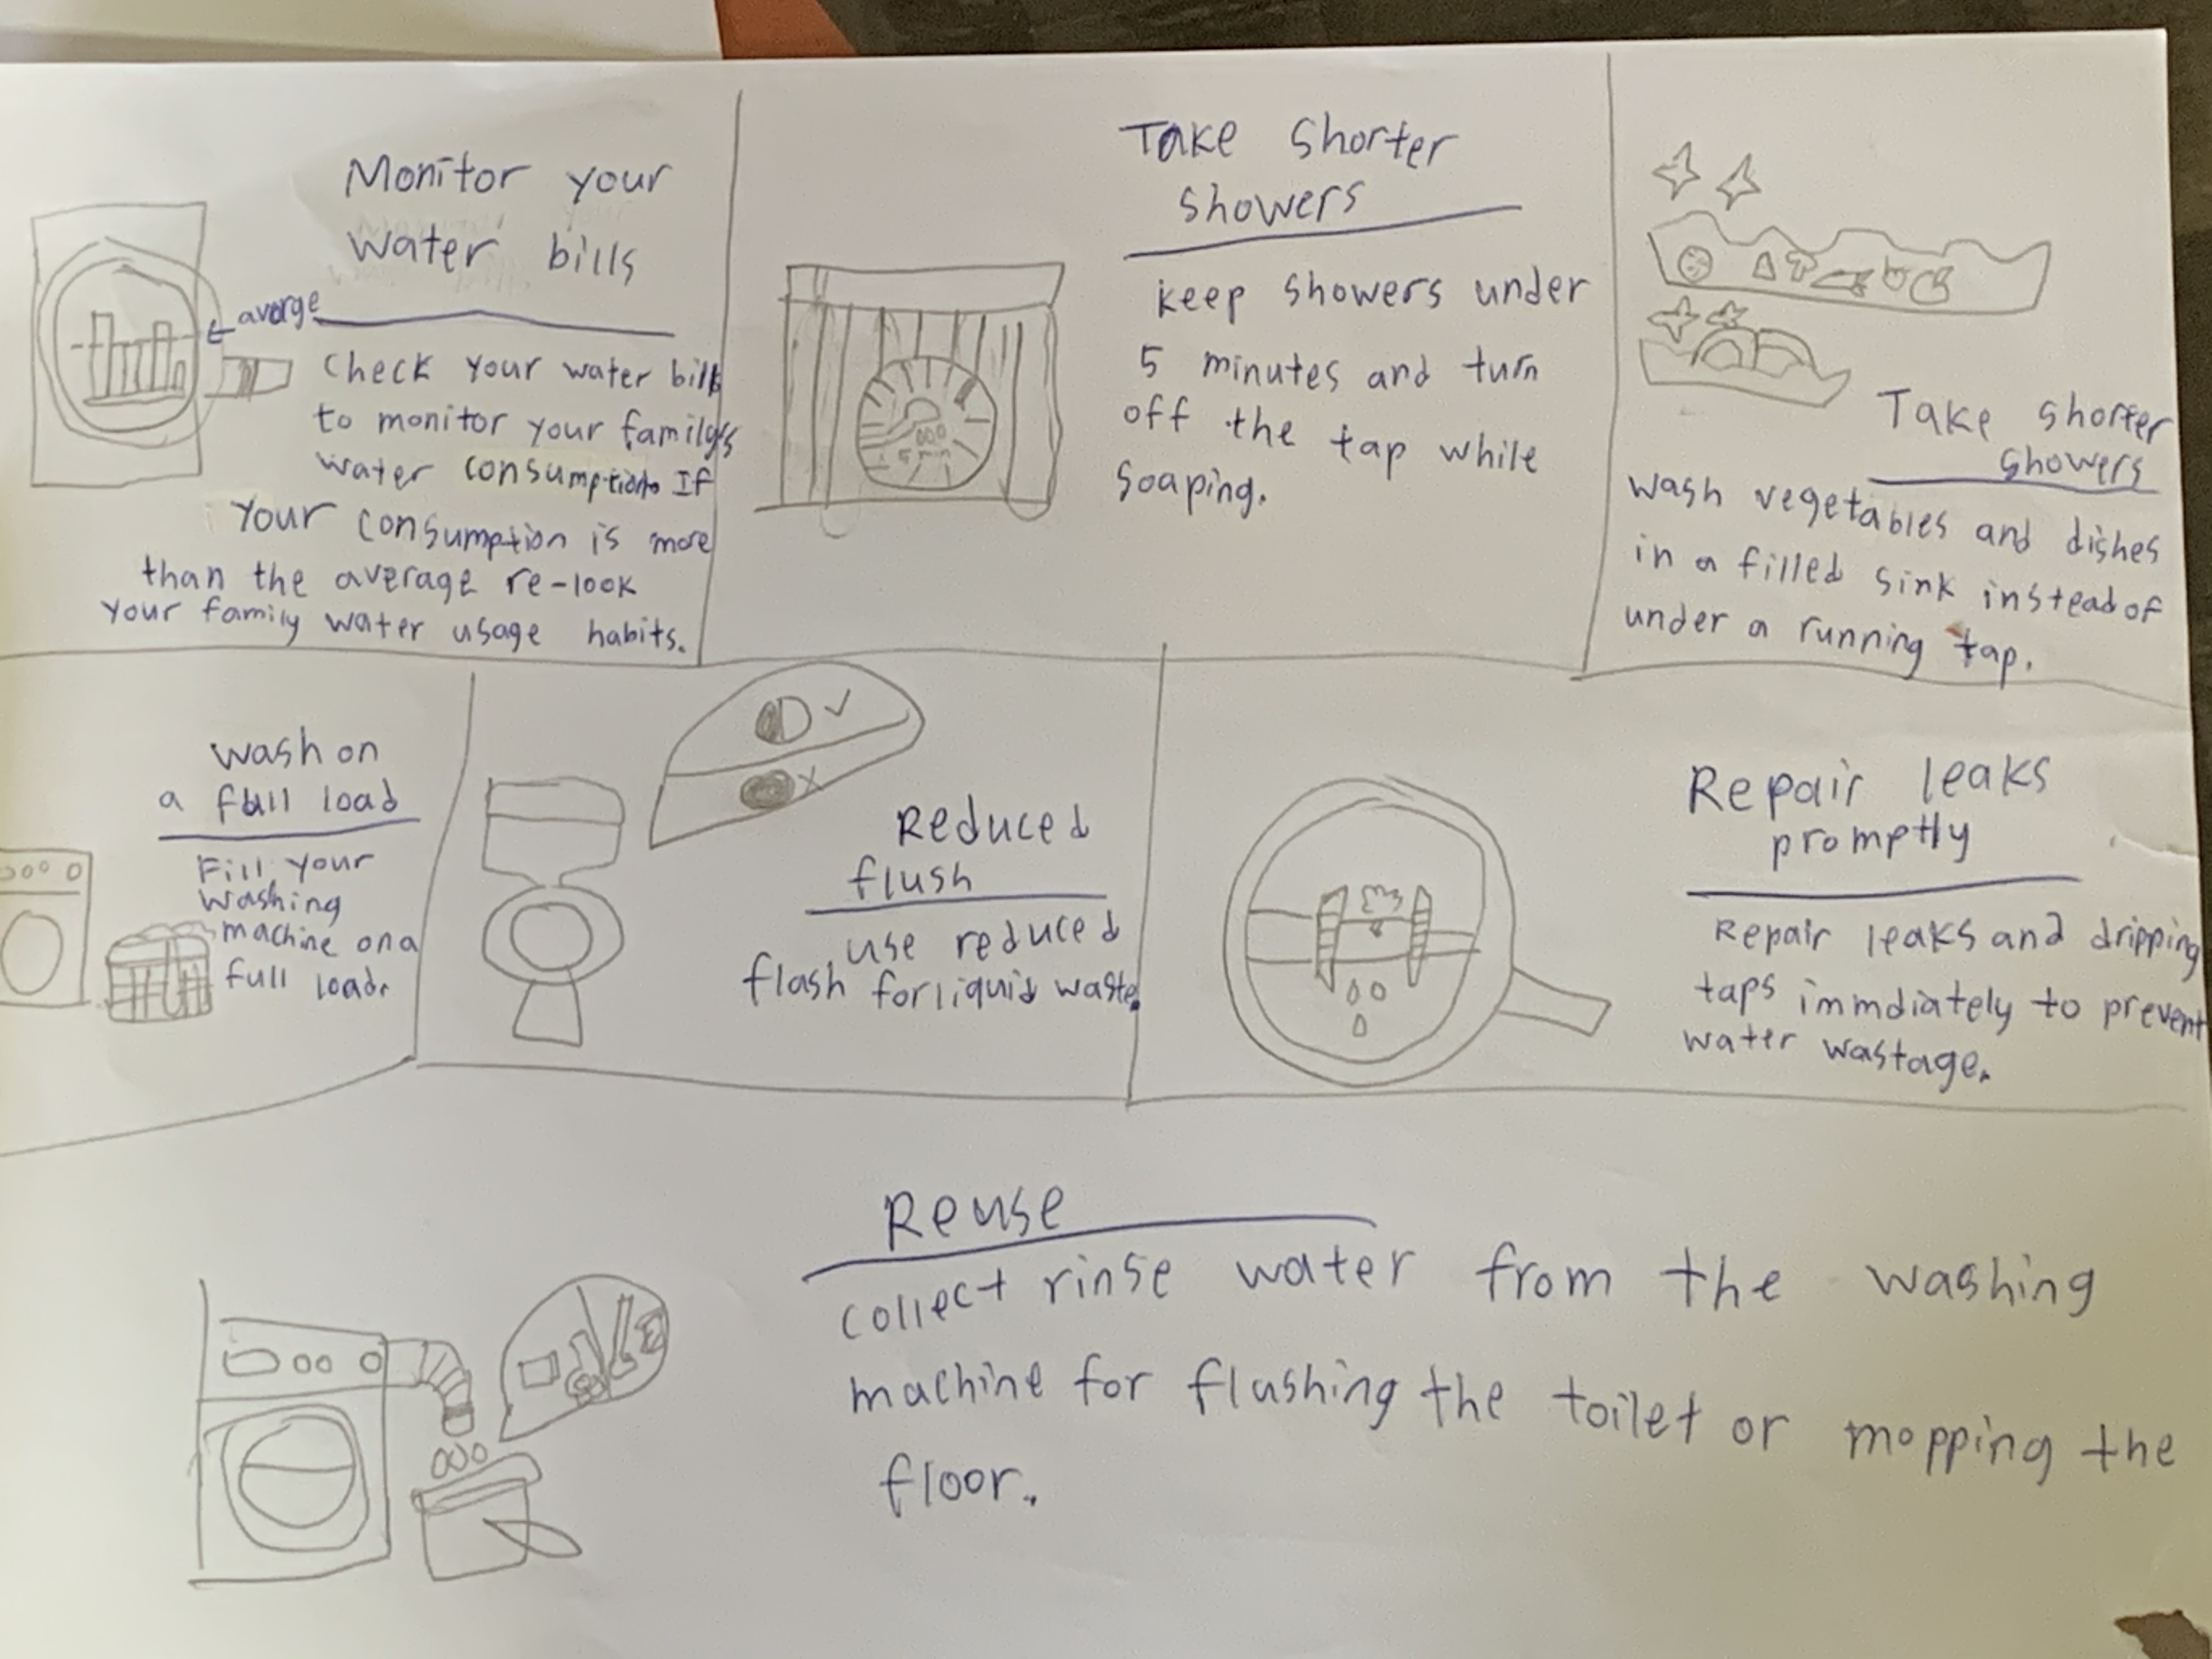 Monitor your
water bills
avorge
Check your water bills
to monitor your family's
water consumption. If
your consumption is more
than the average re-look
your family water usage habits.
Take shorter
showers
keep showers under
5 minutes and turn
off the tap while
soaping.
5 min
Take shorter
showers
wash vegetables and dishes
in a filled sink instead of
under a running tap.
wash on
a full load
Fill your
washing
machine on a
full load.
Reduced
flush
use reduced
flash for liquid waste.
Repair leaks
promptly
Repair leaks and dripping
taps immdiately to prevent
water wastage.
Reuse
collect rinse water from the washing
machine for flushing the toilet or mopping the
floor.